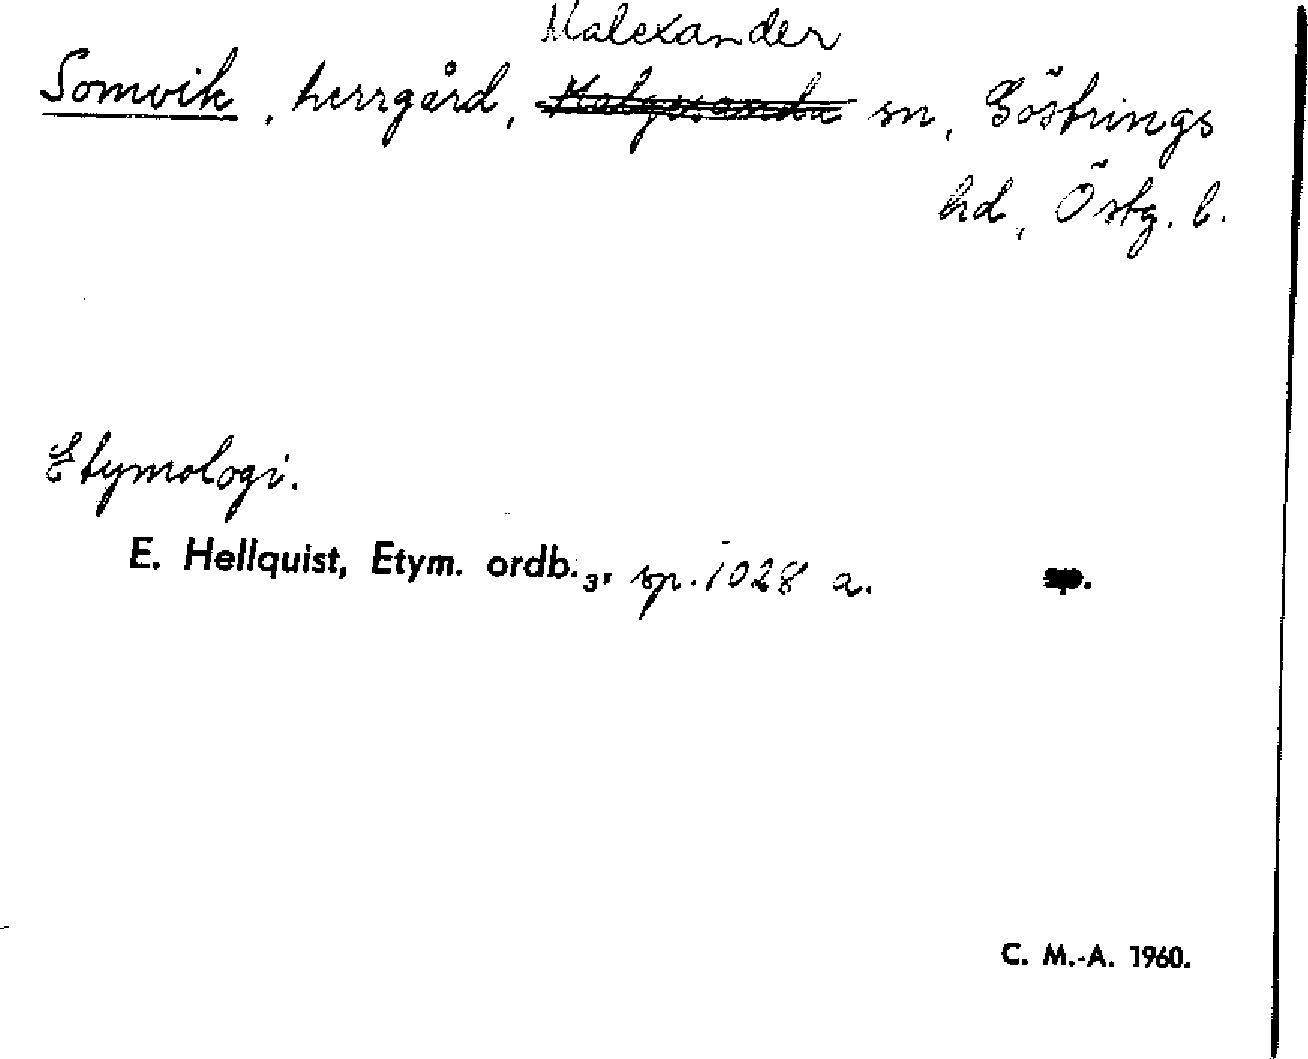 Malexander
Somvik, herrgård, sn, Göstrings
hd, Östg. l.
Etymologi.
E. Hellquist, Etym. ordb. 3, sp. 1028 a.
C. M.-A. 1960.